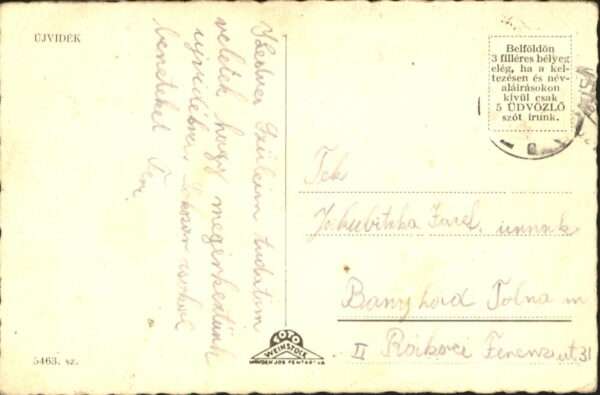 ÚJVIDÉK
Kedves Szüleim tudatom
veletek hogy megérkeztünk
ujvidékre. sokszor csókol
benneteket Feri
Belföldön
3 filléres bélyeg
elég, ha a kel-
tezésen és név-
aláírásokon
kívül csak
5 ÜDVÖZLŐ
szót írunk.
Tek
Jakubitska Károly urnak
Bonyhád Tolna m
II Rákóczi Ferenc ut 31
5463. sz.
FOTO
WEINSTOCK
MINDEN JOG FENTARTVA